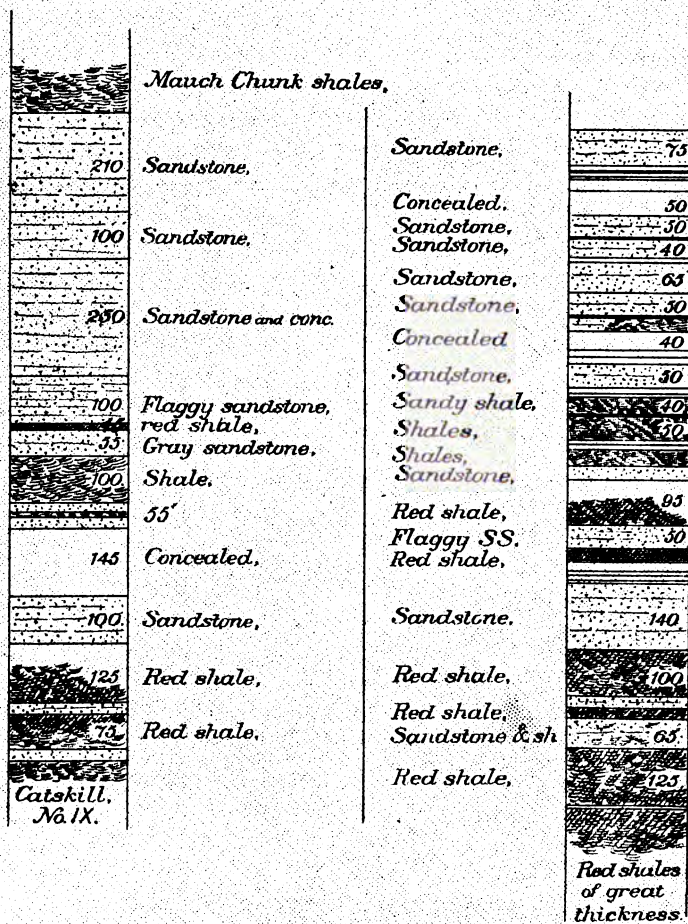 Mauch Chunk shales,
210 Sandstone,
100 Sandstone,
250 Sandstone and conc.
100 Flaggy sandstone,
red shale,
55 Gray sandstone,
100 Shale,
55'
145 Concealed,
100 Sandstone,
125 Red shale,
75 Red shale,
Catskill,
No. IX.
Sandstone, 75
Concealed. 50
Sandstone, 50
Sandstone, 40
Sandstone, 65
Sandstone, 50
Concealed 40
Sandstone, 50
Sandy shale, 40
Shales, 50
Shales,
Sandstone,
Red shale, 95
Flaggy SS. 50
Red shale,
Sandstone. 140
Red shale, 100
Red shale,
Sandstone & sh 65
Red shale, 125
Red shales
of great
thickness